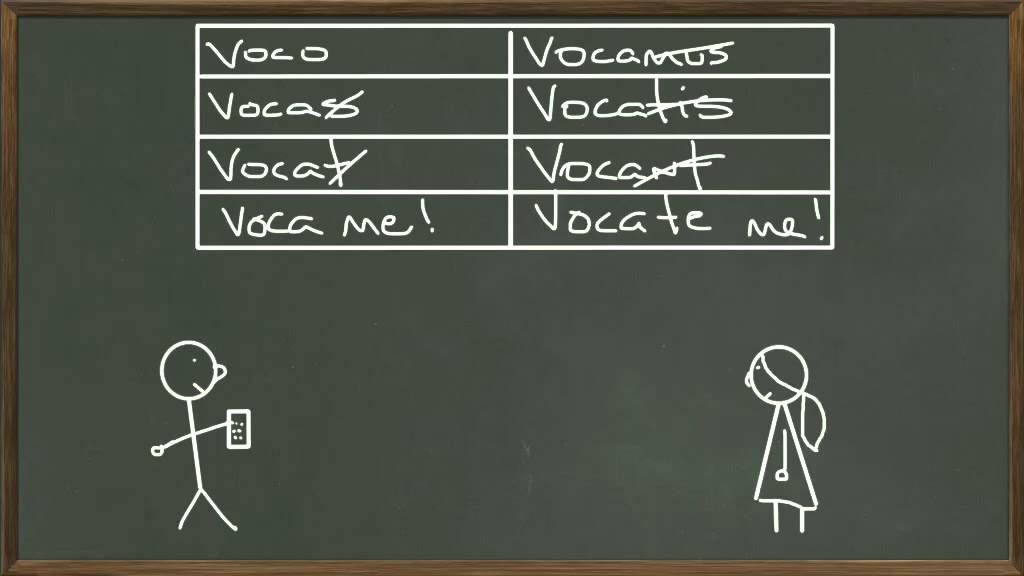 Voco Vocamus
Vocas Vocatis
Vocat Vocant
Voca me! Vocate me!